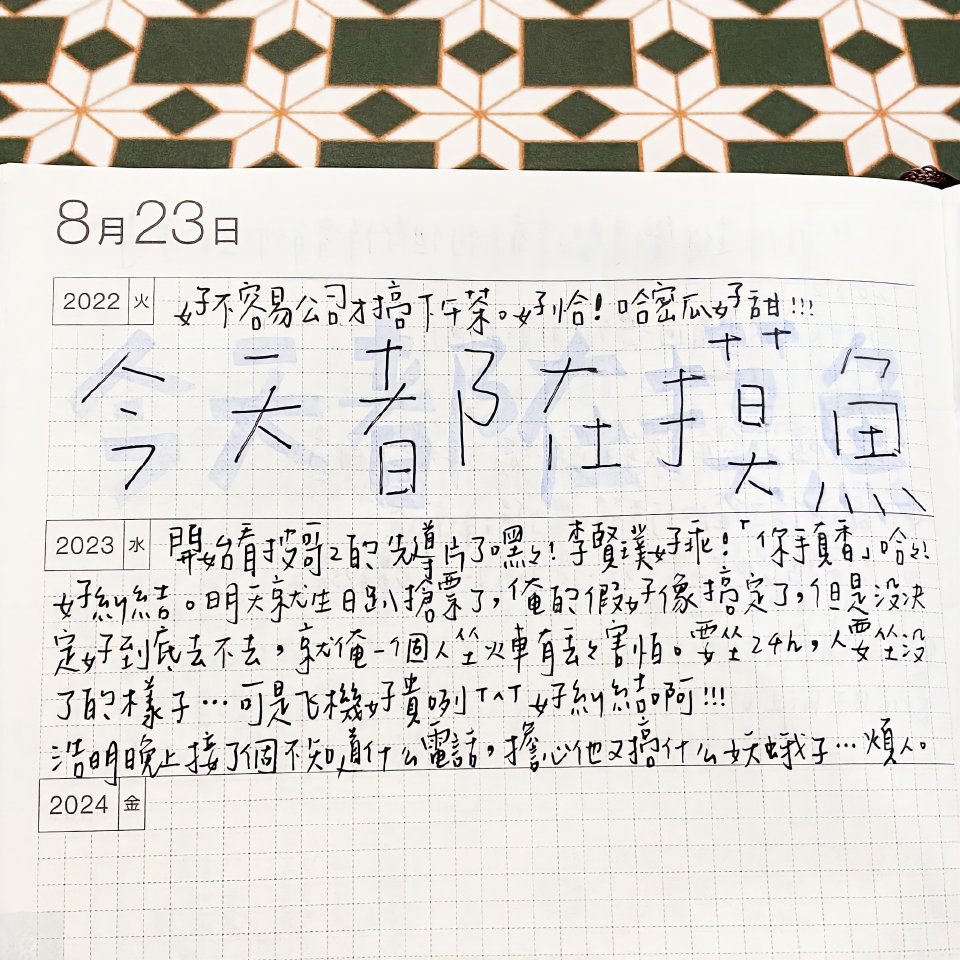 8月23日
2022 火 好不容易公司才搞下午茶。好恰！哈密瓜好甜!!!
今天都在摸魚
2023 水 開始看披哥2的先導片了嘿々！李賢璞好乖！「你手真香」哈々！
好糾結。明天就生日趴搶票了，俺的假好像搞定了，但是没决
定好到底去不去，就俺一個人坐火車有丢々害怕。要坐24h，人要坐没
了的樣子…可是飞機好貴咧TAT好糾結啊!!!
浩明晚上接了個不知道什么電話，擔心他又搞什么妖蛾子…煩人。
2024 金